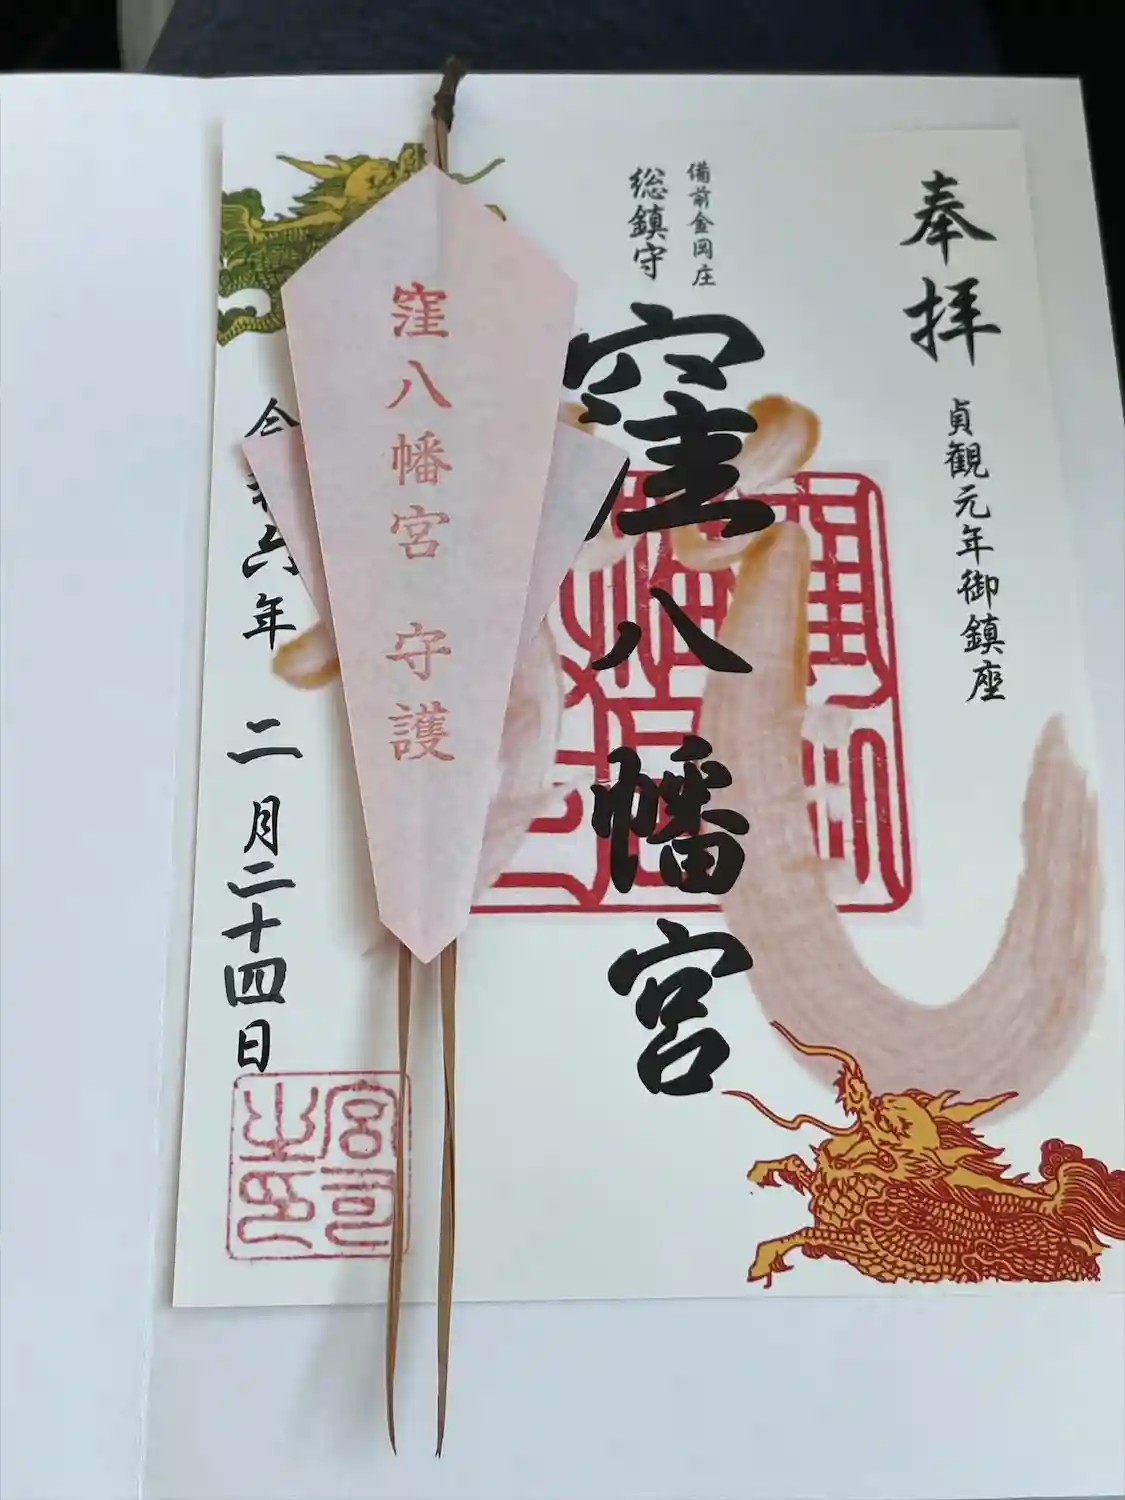 奉拝
貞観元年御鎮座
備前金岡庄
総鎮守
窪八幡宮
窪八幡宮 守護
令和六年 二月二十四日
宮司之印